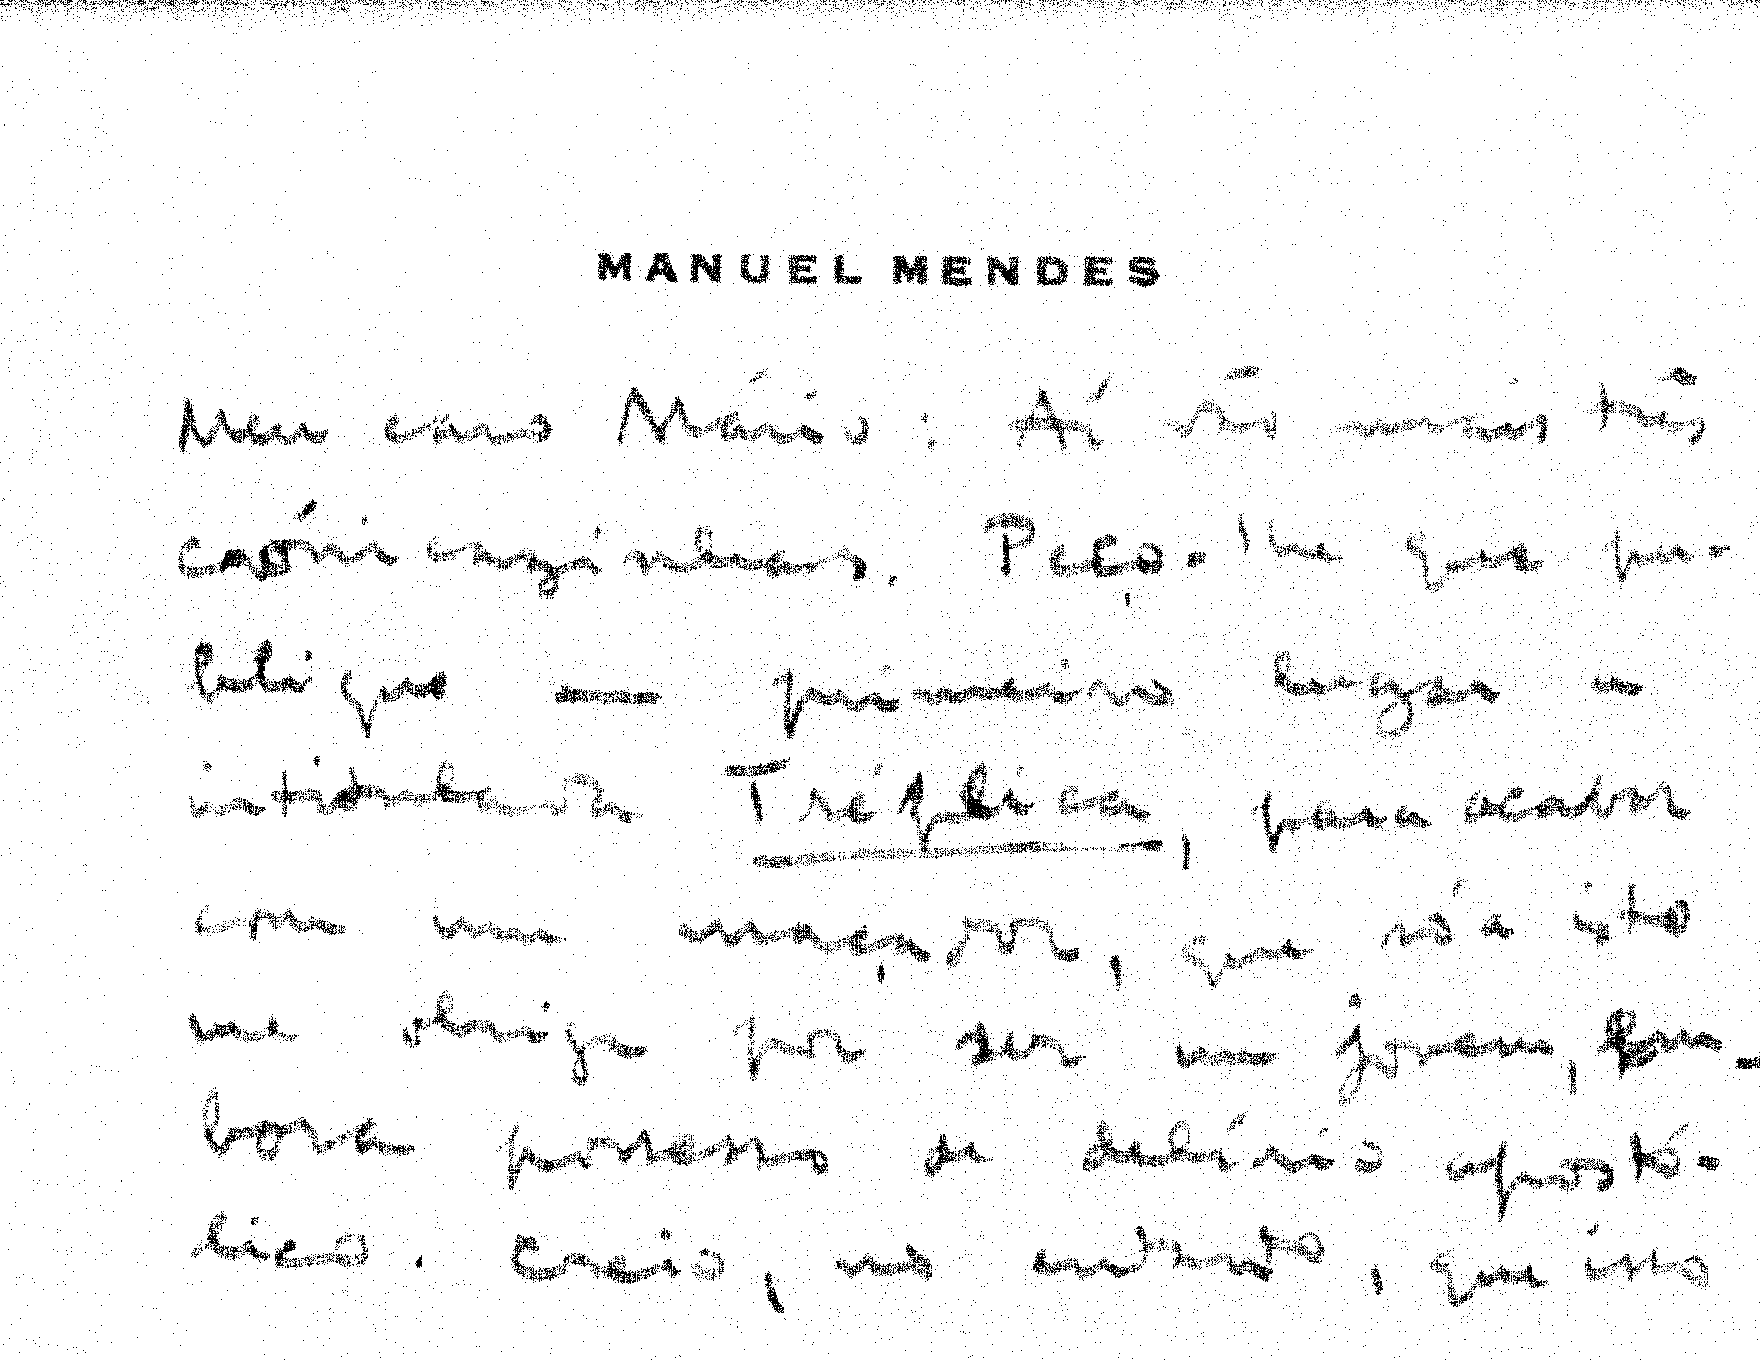 MANUEL MENDES
Meu caro Mário: Aí vão mais três
crónicazinhas. Peço-lhe que pu-
blique — primeiro lugar a
intitulada Tréplica, para acabar
com um maçador, que só a isto
me obriga por ser um jovem, em-
bora possesso de delírio apostó-
lico. Creio, no entanto, que isso